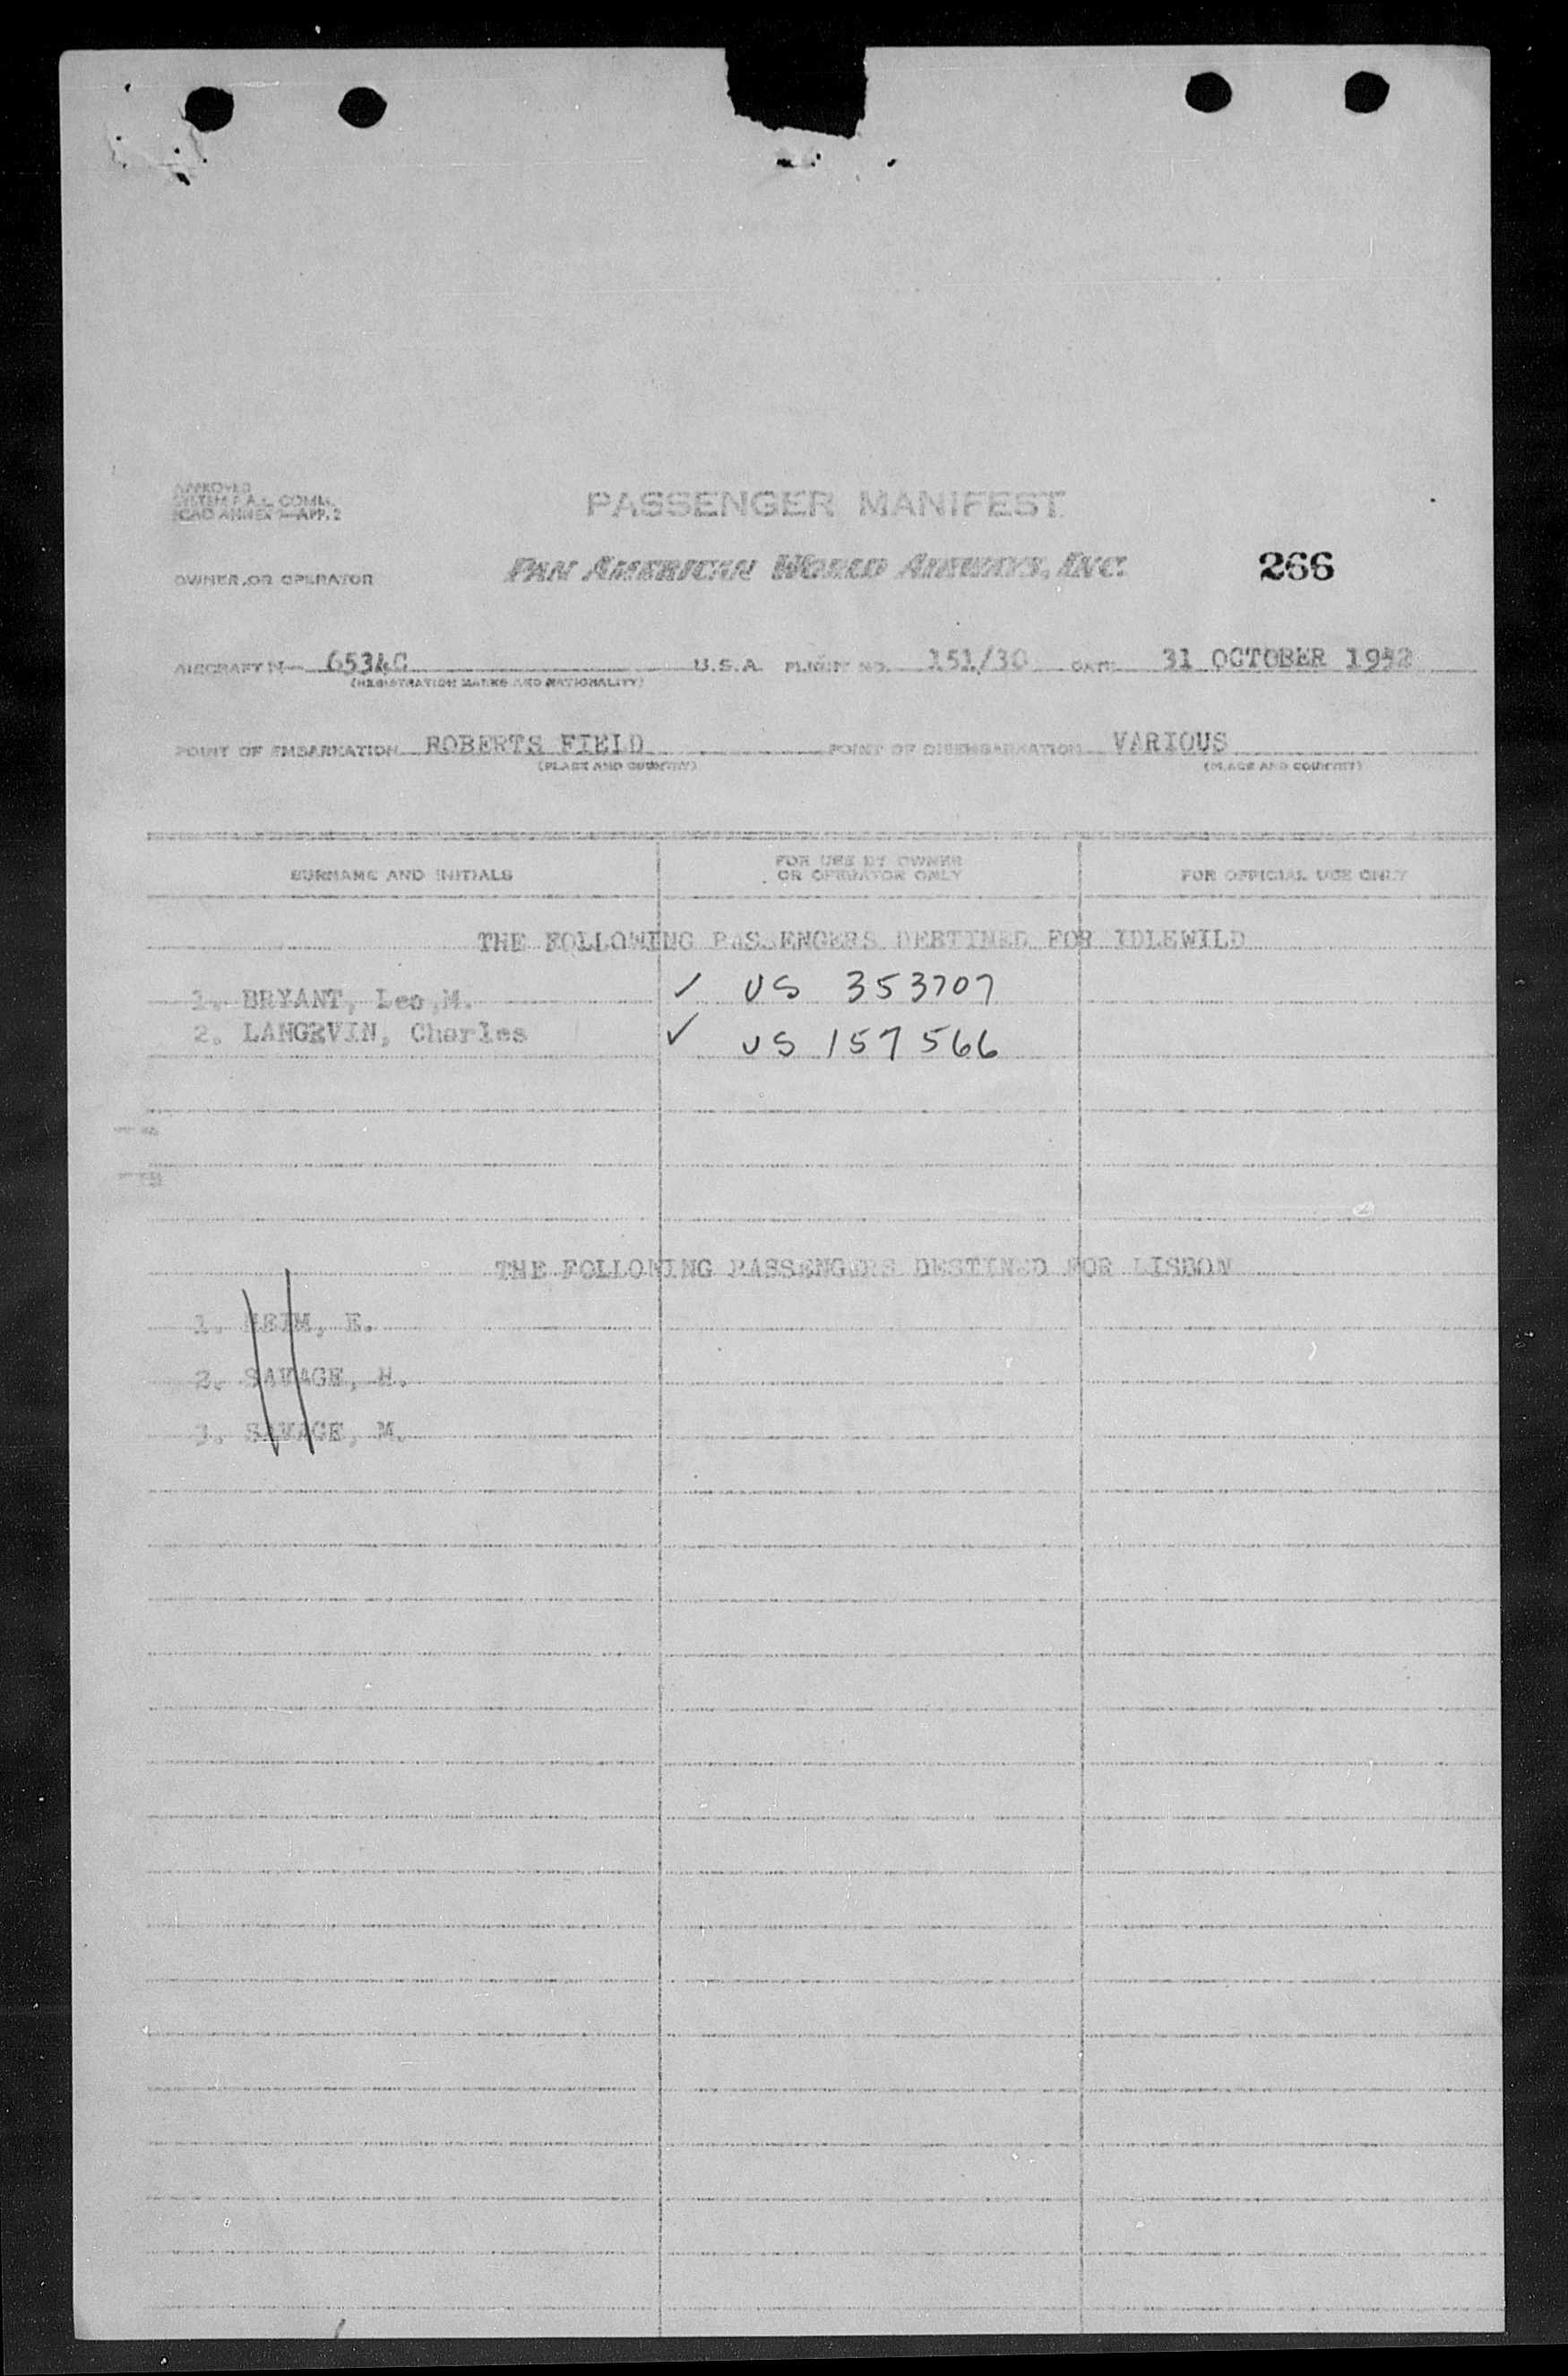 APPROVED
SYSTEM F.A.L. COML.
ICAO ANNEX 9—APP. 2
PASSENGER MANIFEST
OWNER OR OPERATOR PAN AMERICAN WORLD AIRWAYS, INC. 266
AIRCRAFT N— 6534C U.S.A. FLIGHT NO. 151/30 DATE 31 OCTOBER 1952
(REGISTRATION MARKS AND NATIONALITY)
POINT OF EMBARKATION ROBERTS FIELD POINT OF DISEMBARKATION VARIOUS
(PLACE AND COUNTRY) (PLACE AND COUNTRY)
SURNAME AND INITIALS FOR USE BY OWNER OR OPERATOR ONLY FOR OFFICIAL USE ONLY
THE FOLLOWING PASSENGERS DESTINED FOR IDLEWILD
1. BRYANT, Leo,M. ✓ US 353707
2. LANGEVIN, Charles ✓ US 157566
THE FOLLOWING PASSENGERS DESTINED FOR LISBON
1. HEIM, E.
2. SAVAGE, H.
3. SAVAGE, M.